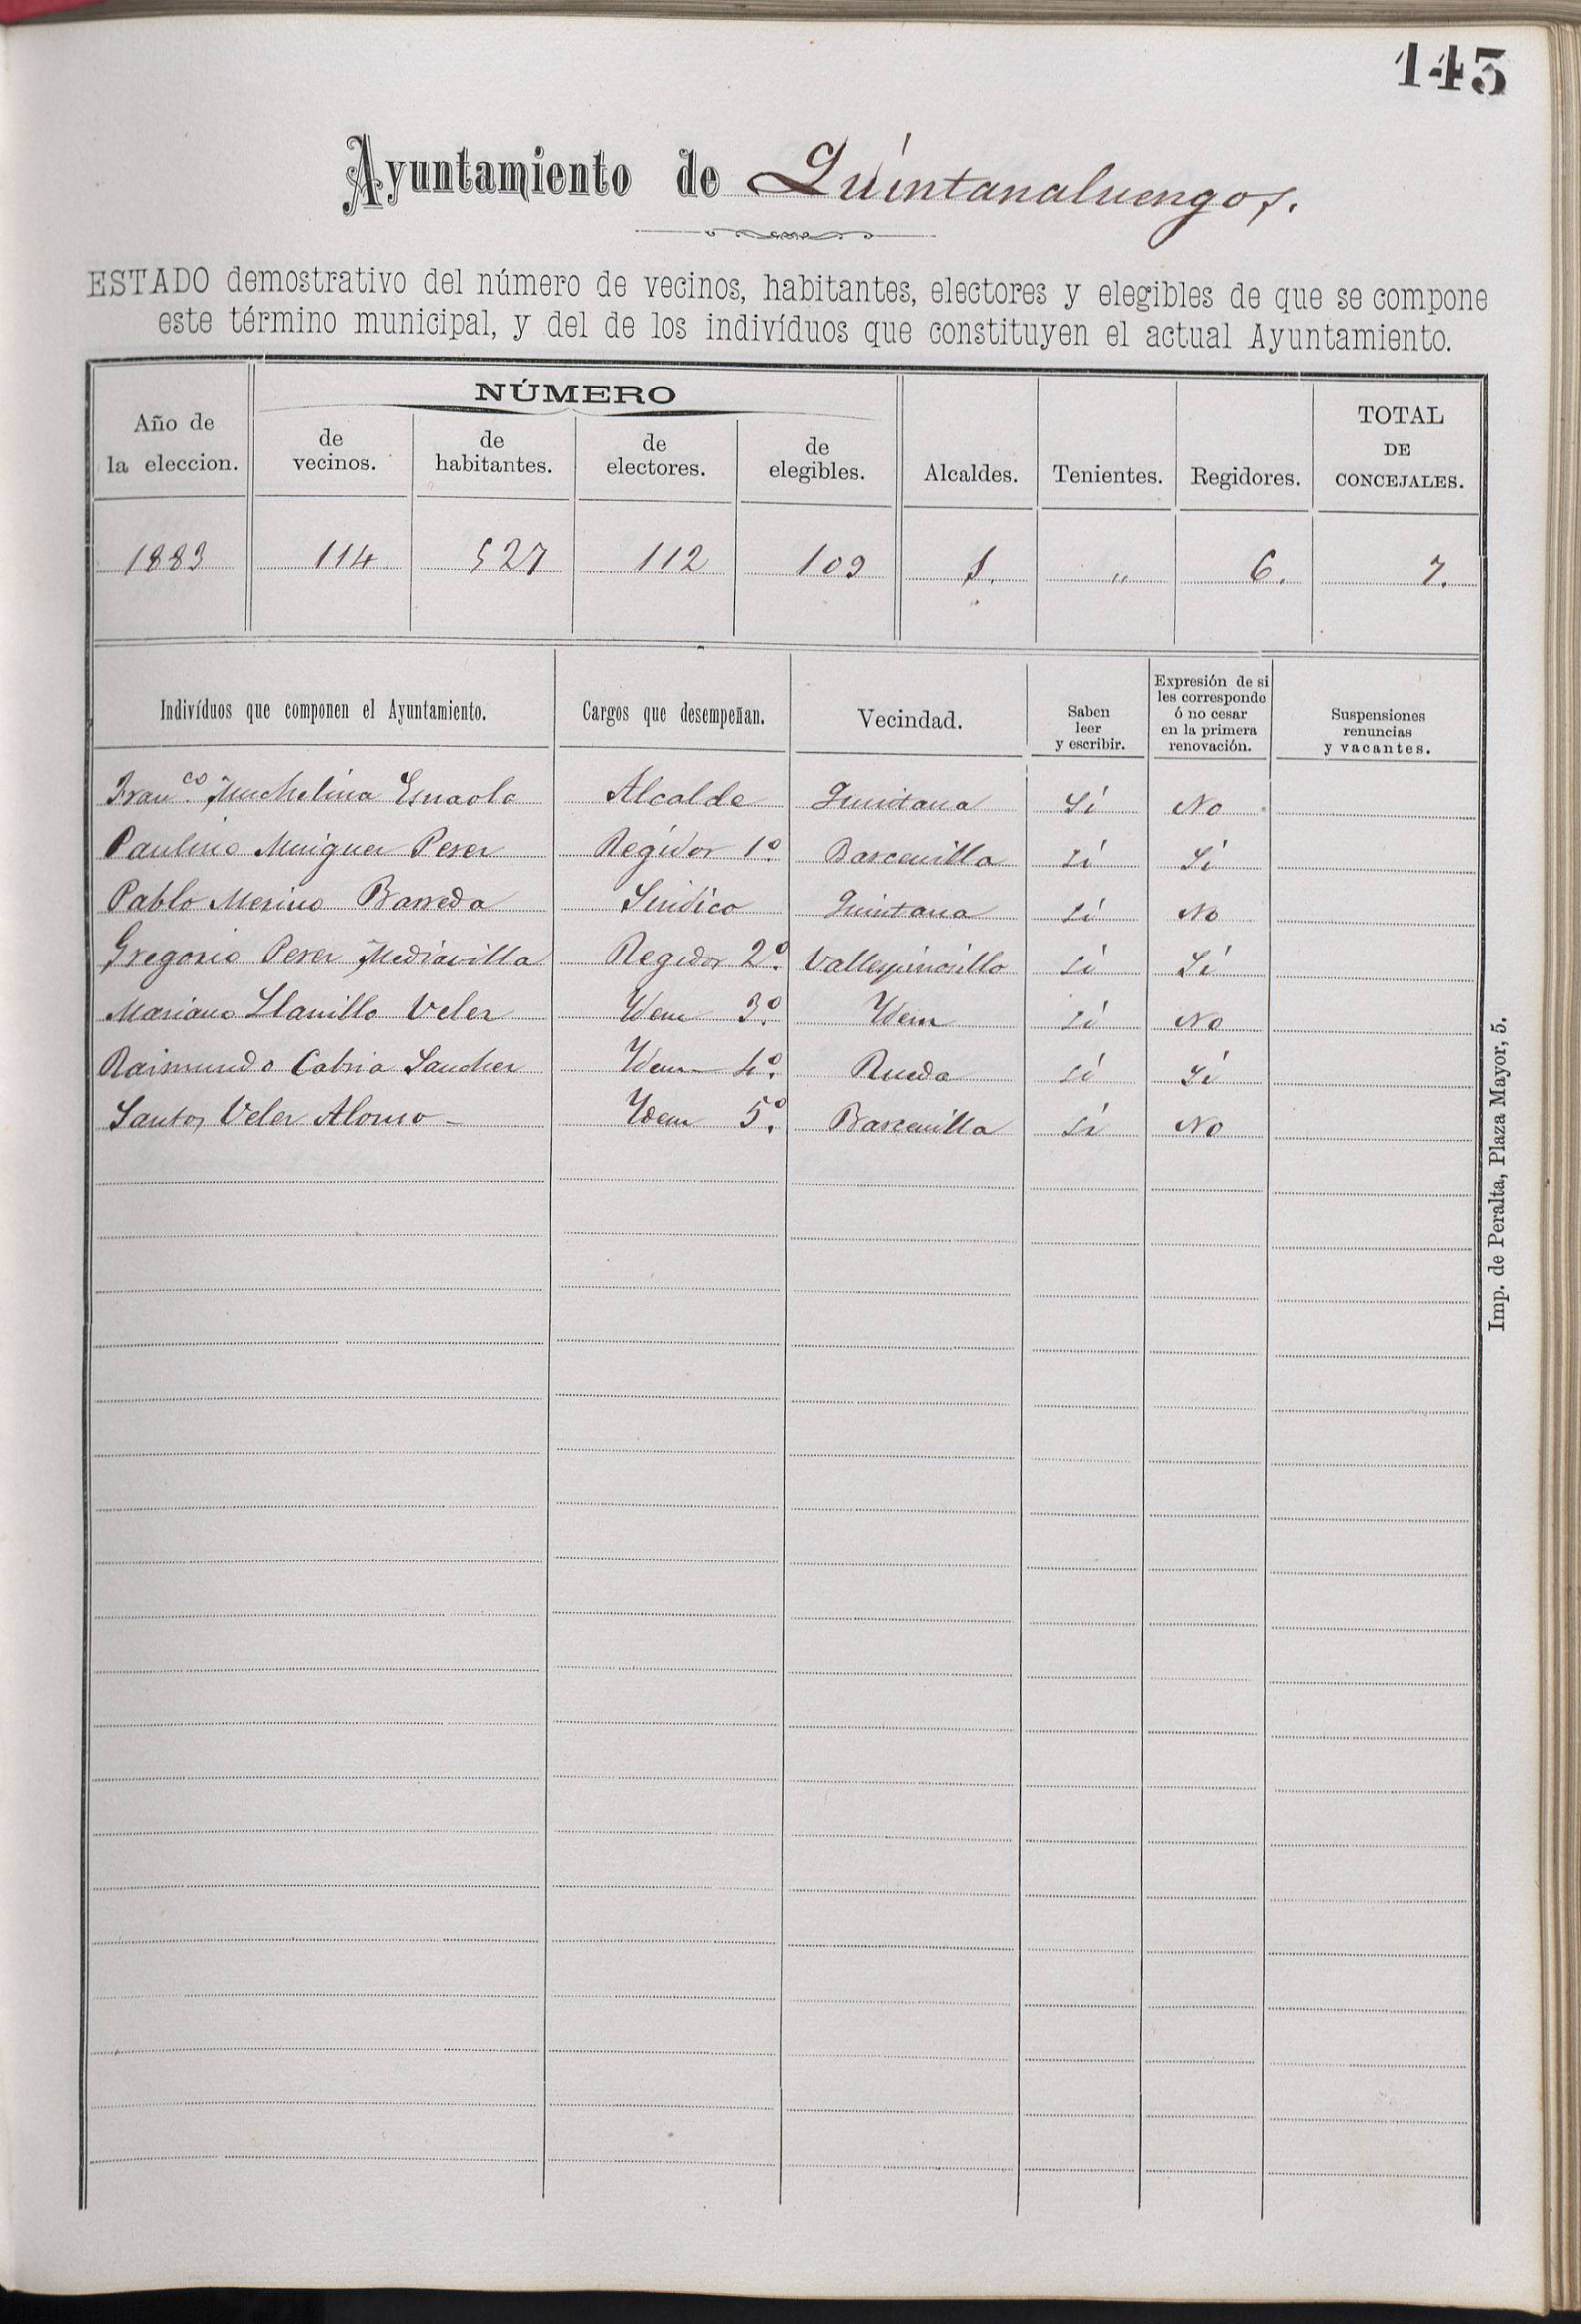 143
Ayuntamiento de Quintanaluengos.
ESTADO demostrativo del número de vecinos, habitantes, electores y elegibles de que se compone
este término municipal, y del de los indivíduos que constituyen el actual Ayuntamiento.
Año de la eleccion. NÚMERO de vecinos. de habitantes. de electores. de elegibles. Alcaldes. Tenientes. Regidores. TOTAL DE CONCEJALES.
1883 114 527 112 109 1. " 6. 7.
Indivíduos que componen el Ayuntamiento. Cargos que desempeñan. Vecindad. Saben leer y escribir. Expresión de si les corresponde ó no cesar en la primera renovación. Suspensiones renuncias y vacantes.
Fran.co Alcalde Quintana Sí No
Paulino Minguez Perez Regidor 1º. Barcenilla Sí Sí
Pablo Merino Barreda Sindico Quintana Sí No
Gregorio Perez Mediavilla Regidor 2º. Vallespinosillo Sí Sí
Mariano Llanillo Velez Idem 3º. Idem Sí No
Raimundo Cabria Sanchez Idem 4º. Rueda Sí Sí
Santos Velez Alonso Idem 5º. Barcenilla Sí No
Imp. de Peralta, Plaza Mayor, 5.